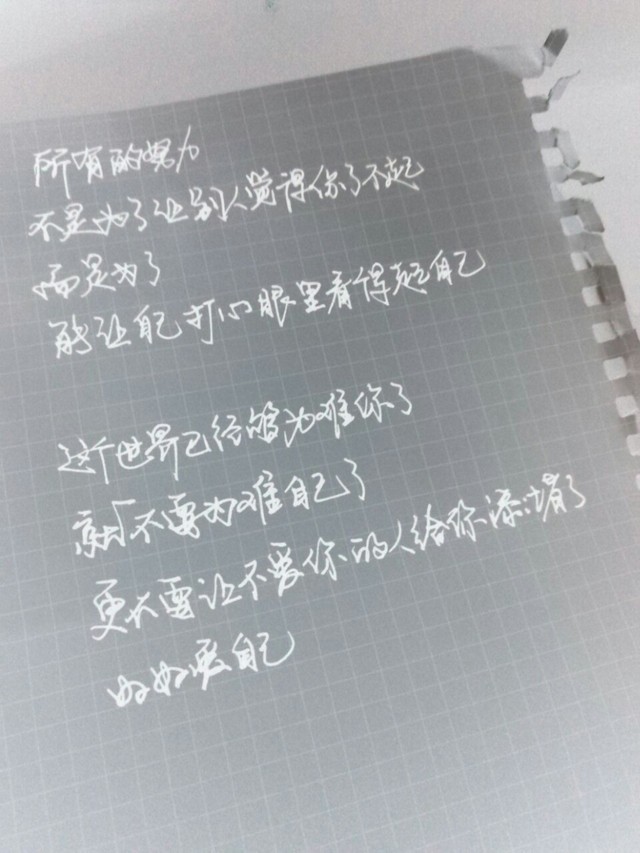 所有的努力
不是为了让别人觉得你了不起
而是为了
能让自己打心眼里看得起自己
这个世界已经够为难你了
就不要为难自己了
更不要让不爱你的人给你添堵了
好好爱自己